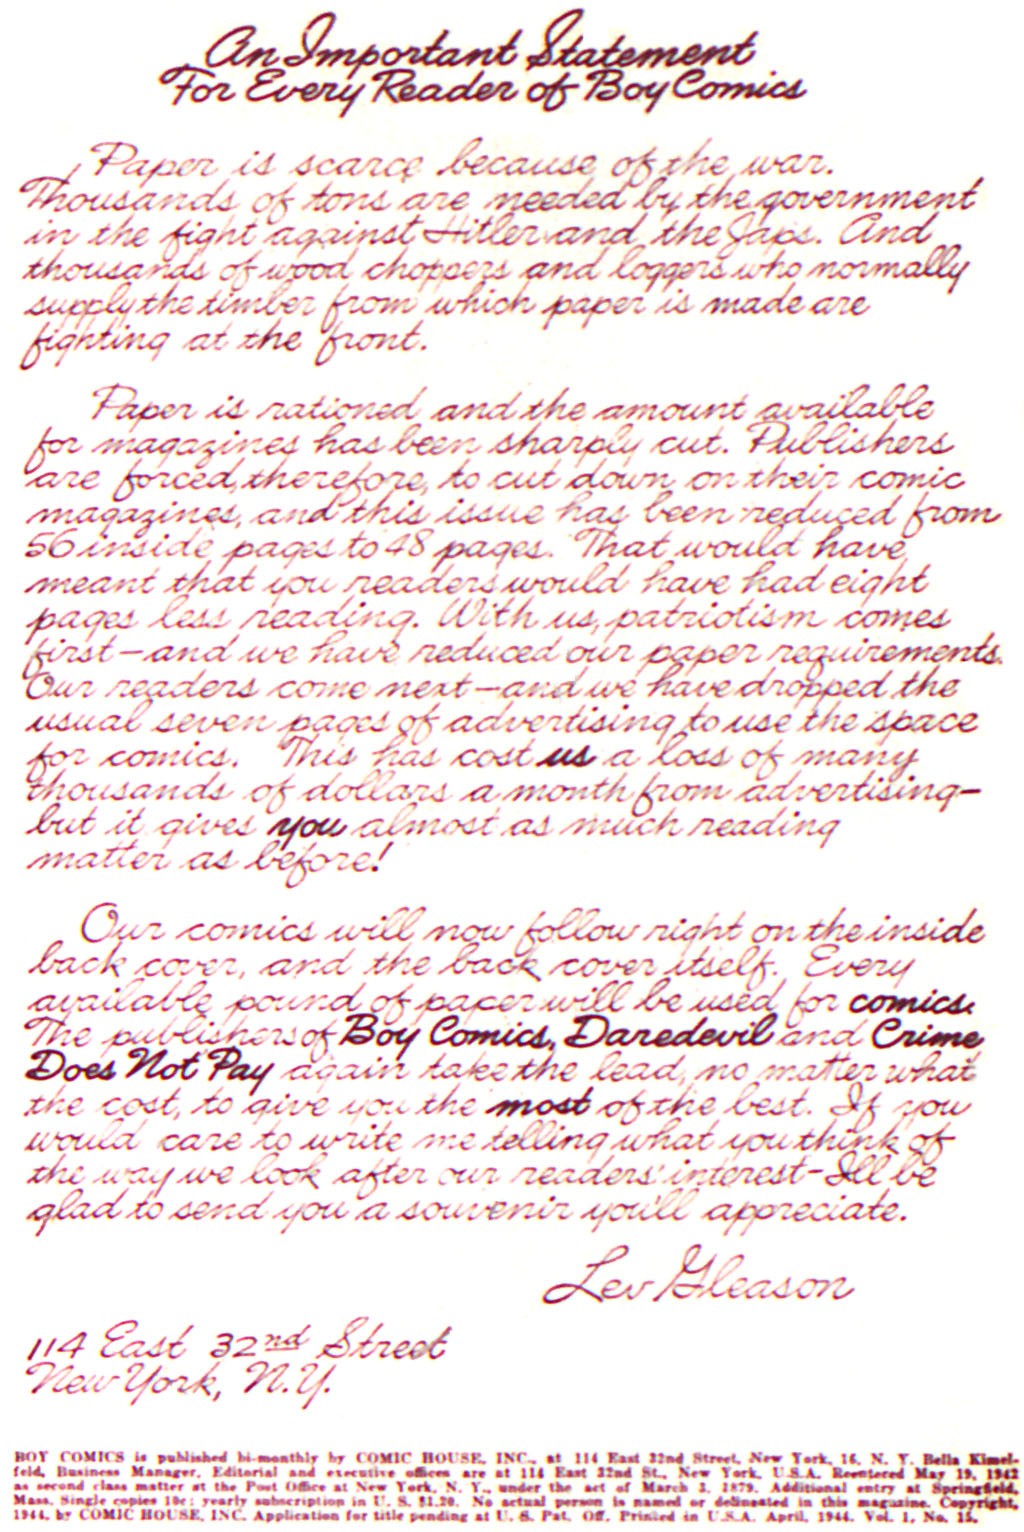 An Important Statement
For Every Reader of Boy Comics
Paper is scarce because of the war.
Thousands of tons are needed by the government
in the fight against Hitler and the Japs. And
thousands of wood choppers and loggers who normally
supply the timber from which paper is made are
fighting at the front.
Paper is rationed and the amount available
for magazines has been sharply cut. Publishers
are forced, therefore, to cut down on their comic
magazines, and this issue has been reduced from
56 inside pages to 48 pages. That would have
meant that you readers would have had eight
pages less reading. With us, patriotism comes
first—and we have reduced our paper requirements.
Our readers come next—and we have dropped the
usual seven pages of advertising to use the space
for comics. This has cost us a loss of many
thousands of dollars a month from advertising—
but it gives you almost as much reading
matter as before!
Our comics will now follow right on the inside
back cover, and the back cover itself. Every
available pound of paper will be used for comics.
The publishers of Boy Comics, Daredevil and Crime
Does Not Pay again take the lead, no matter what
the cost, to give you the most of the best. If you
would care to write me telling what you think of
the way we look after our readers' interest—I'll be
glad to send you a souvenir you'll appreciate.
Lev Gleason
114 East 32nd Street
New York, N.Y.
BOY COMICS is published bi-monthly by COMIC HOUSE, INC., at 114 East 32nd Street, New York, 16, N. Y. Bella Kimel-
feld, Business Manager. Editorial and executive offices are at 114 East 32nd St., New York, U.S.A. Reentered May 19, 1942
as second class matter at the Post Office at New York, N. Y., under the act of March 3, 1879. Additional entry at Springfield,
Mass. Single copies 10c; yearly subscription in U. S. $1.20. No actual person is named or delineated in this magazine. Copyright,
1944, by COMIC HOUSE, INC. Application for title pending at U. S. Pat. Off. Printed in U.S.A. April, 1944. Vol. 1, No. 15.